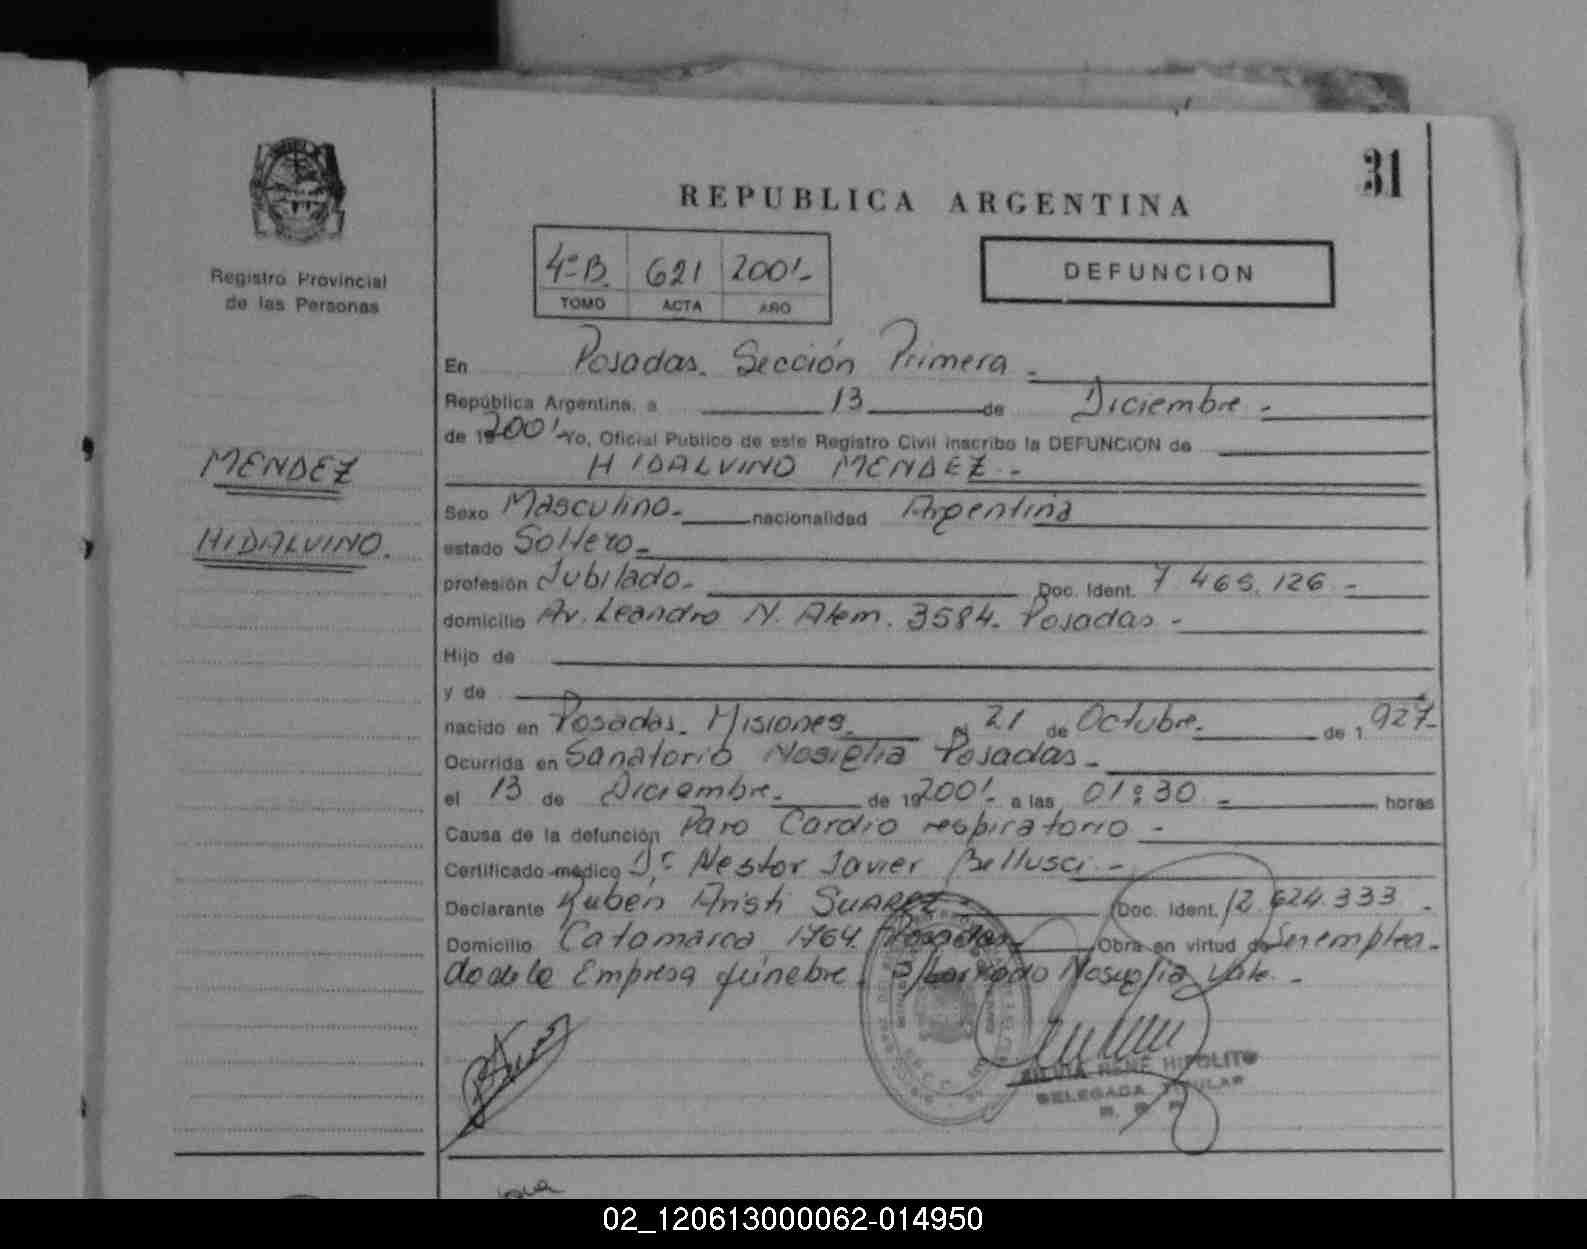 31
REPUBLICA ARGENTINA
Registro Provincial
de las Personas
4º B. 621 2001-
TOMO ACTA AÑO
DEFUNCION
En Posadas. Sección Primera -
República Argentina, a 13 de Diciembre -
de 19 2001- Yo, Oficial Publico de este Registro Civil inscribo la DEFUNCION de
HIDALVINO MENDEZ -
MENDEZ
HIDALVINO.
Sexo Masculino. nacionalidad Argentina
estado Soltero -
profesión Jubilado. Doc. Ident. 7.465.126 -
domicilio Av. Leandro N. Alem. 3584. Posadas -
Hijo de
y de
nacido en Posadas. Misiones. el 21 de Octubre. de 1.927-
Ocurrida en Sanatorio Nosiglia Posadas -
el 13 de Diciembre. de 19 2001- a las 01:30 - horas
Causa de la defunción Paro Cardio respiratorio -
Certificado médico Dr Nestor Javier Bellusci -
Declarante Ruben Aristi SUAREZ - Doc. Ident. 12.624.333 -
Domicilio Catamarca 1764. Posadas - Obra en virtud de Ser emplea-
do de la Empresa fúnebre. Nosiglia Vale. -
SILVIA RENE HIPOLITO
DELEGADA TITULAR
R. P. P.
02_120613000062-014950